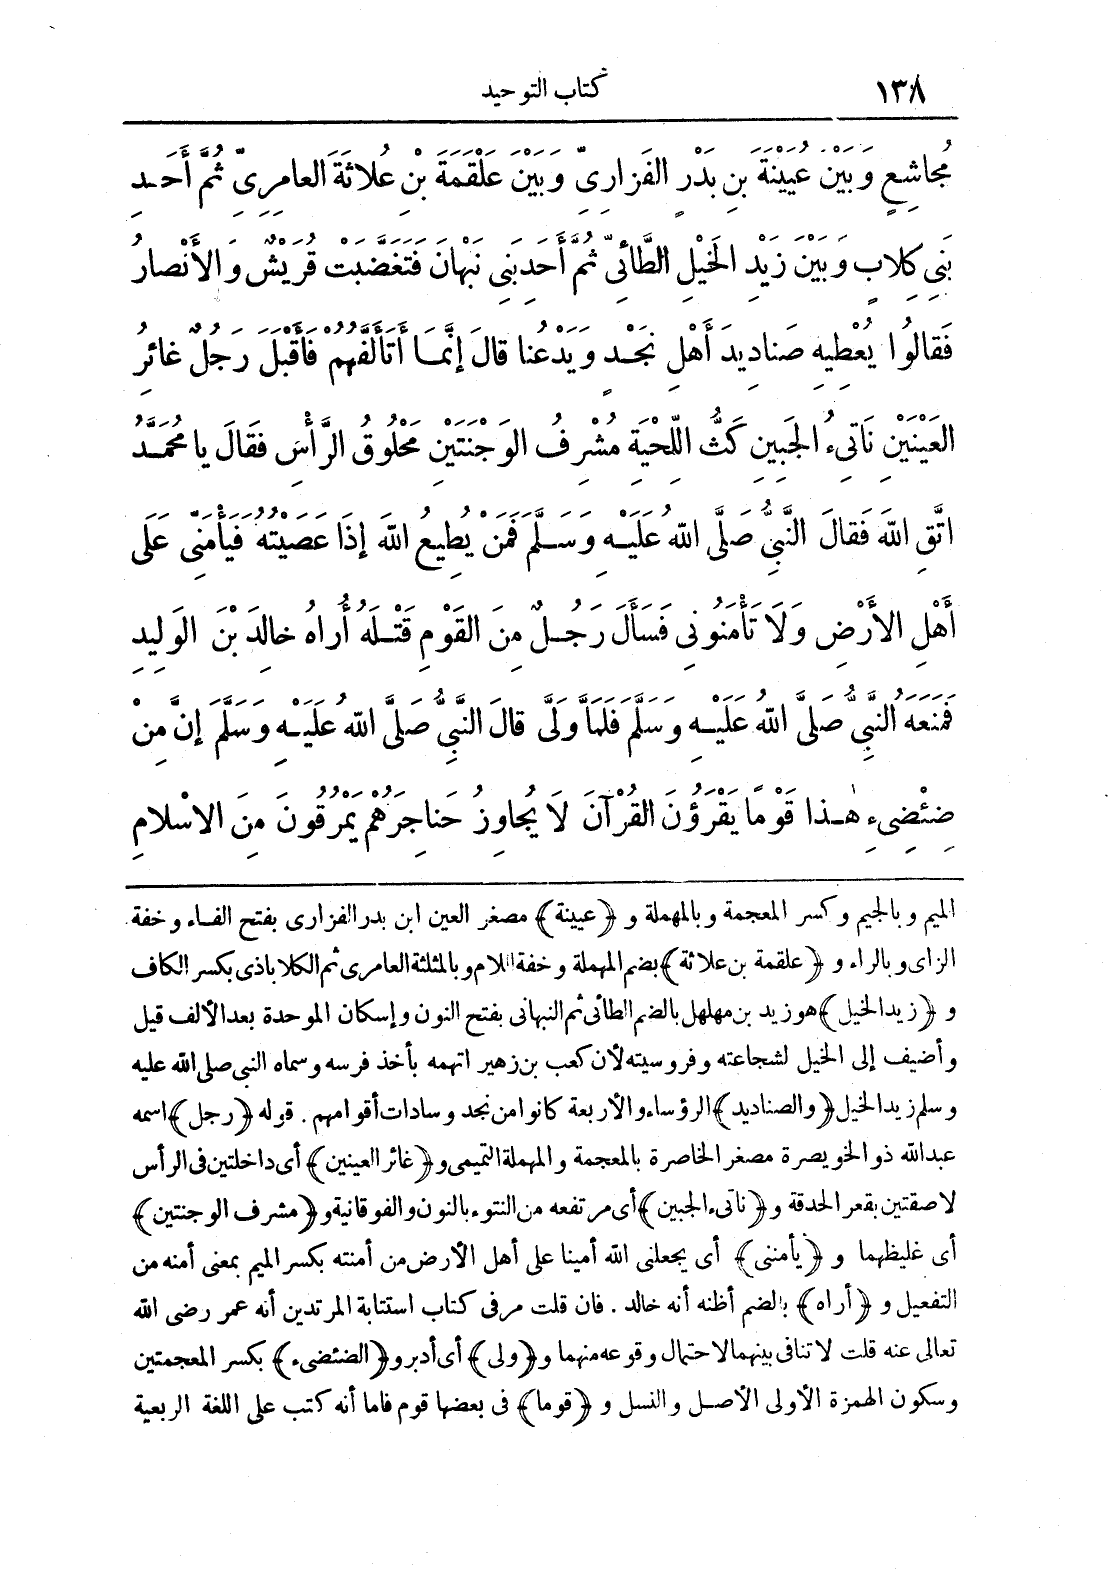 ١٣٨
كتاب التوحيد
مُجَاشِعٍ وَبَيْنَ عُيَيْنَةَ بنِ بَدْرٍ الفَزَارِىِّ وَبَيْنَ عَلْقَمَةَ بْنِ عُلاثَةَ العامِرِىِّ ثُمَّ أَحَدِ
بَنِى كِلابٍ وَبَيْنَ زَيْدِ الخَيْلِ الطَّائِىِّ ثُمَّ أَحَدِ بَنِى نَبْهانَ فَتَغَضَّبَتْ قُرَيْشٌ والأَنْصارُ
فَقالُوا يُعْطِيهِ صَنادِيدَ أَهْلِ نَجْدٍ ويَدَعُنا قالَ إِنَّمَا أَتَأَلَّفُهُمْ فَأَقْبَلَ رَجُلٌ غائِرُ
العَيْنَيْنِ نَاتِىءُ الجَبِينِ كَثُّ اللِّحْيَةِ مُشْرِفُ الوَجْنَتَيْنِ مَحْلُوقُ الرَّأْسِ فقَالَ يا مُحَمَّدُ
اتَّقِ اللهَ فَقالَ النَّبِىُّ صَلَّى اللهُ عَلَيْهِ وَسَلَّمَ فَمَنْ يُطِيعُ اللهَ إِذَا عَصَيْتُهُ فَيَأْمَنُنِى عَلَى
أَهْلِ الأَرْضِ وَلَا تَأْمَنُونِى فَسَأَلَ رَجُلٌ مِنَ القَوْمِ قَتْلَهُ أُرَاهُ خالِدَ بْنَ الوَلِيدِ
فَمَنَعَهُ النَّبِىُّ صَلَّى اللهُ عَلَيْهِ وَسَلَّمَ فَلَمَّا وَلَّى قالَ النَّبِىُّ صَلَّى اللهُ عَلَيْهِ وَسَلَّمَ إِنَّ مِنْ
ضِئْضِىءِ هٰذا قَوْمًا يَقْرَؤُنَ القُرْآنَ لَا يُجَاوِزُ حَنَاجِرَهُمْ يَمْرُقُونَ مِنَ الاسْلامِ
الميم وبالجيم وكسر المعجمة وبالمهملة و ﴿عيينة﴾ مصغر العين ابن بدر الفزارى بفتح الفاء وخفة
الزاى وبالراء و ﴿علقمة بن علاثة﴾ بضم المهملة وخفة اللام وبالمثلثة العامرى ثم الكلاباذى بكسر الكاف
و ﴿زيد الخيل﴾ هو زيد بن مهلهل بالضم الطائى ثم النبهانى بفتح النون وإسكان الموحدة بعد الألف قيل
وأضيف إلى الخيل لشجاعته وفروسيته لأن كعب بن زهير اتهمه بأخذ فرسه وسماه النبى صلى الله عليه
وسلم زيد الخيل ﴿والصناديد﴾ الرؤساء والأربعة كانوا من نجد وسادات أقوامهم . قوله ﴿رجل﴾ اسمه
عبدالله ذو الخويصرة مصغر الخاصرة بالمعجمة والمهملة التميمى و ﴿غائر العينين﴾ أى داخلتين فى الرأس
لاصقتين بقعر الحدقة و ﴿ناتىء الجبين﴾ أى مرتفعه من النتوء بالنون والفوقانية و ﴿مشرف الوجنتين﴾
أى غليظهما و ﴿يأمننى﴾ أى يجعلنى الله أمينا على أهل الأرض من أمنته بكسر الميم بمعنى أمنه من
التفعيل و ﴿أراه﴾ بالضم أظنه أنه خالد . فان قلت مر فى كتاب استتابة المرتدين أنه عمر رضى الله
تعالى عنه قلت لا تنافى بينهما لاحتمال وقوعه منهما و ﴿ولى﴾ أى أدبر و ﴿الضئضىء﴾ بكسر المعجمتين
وسكون الهمزة الأولى الأصل والنسل و ﴿قوما﴾ فى بعضها قوم فاما أنه كتب على اللغة الربعية